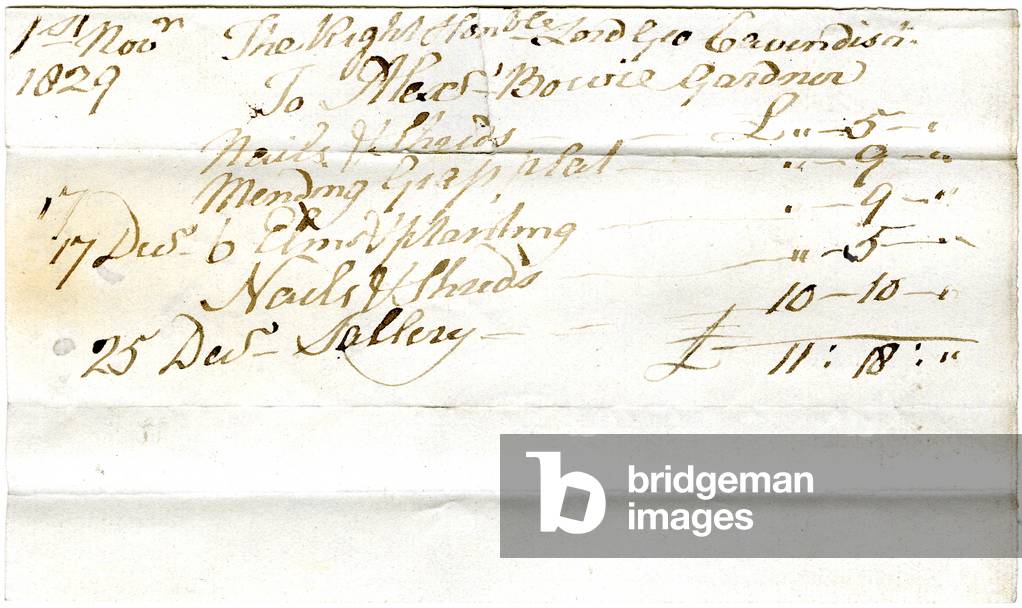 1st Novr The Right Honble Lord Geo Cavendish
1829 To Alexr Bowie Gardner
Nails & Shreds — — £ „ — 5 — „
Mending Grap plat — „ — 9 — „
17
17 Decr 6 Elms & planting — „ — 9 — „
Nails & Shreds — „ — 5 — „
25 Decr Sallery — — 10 — 10 — „
£ — 11 : 18 : „
bridgeman
images